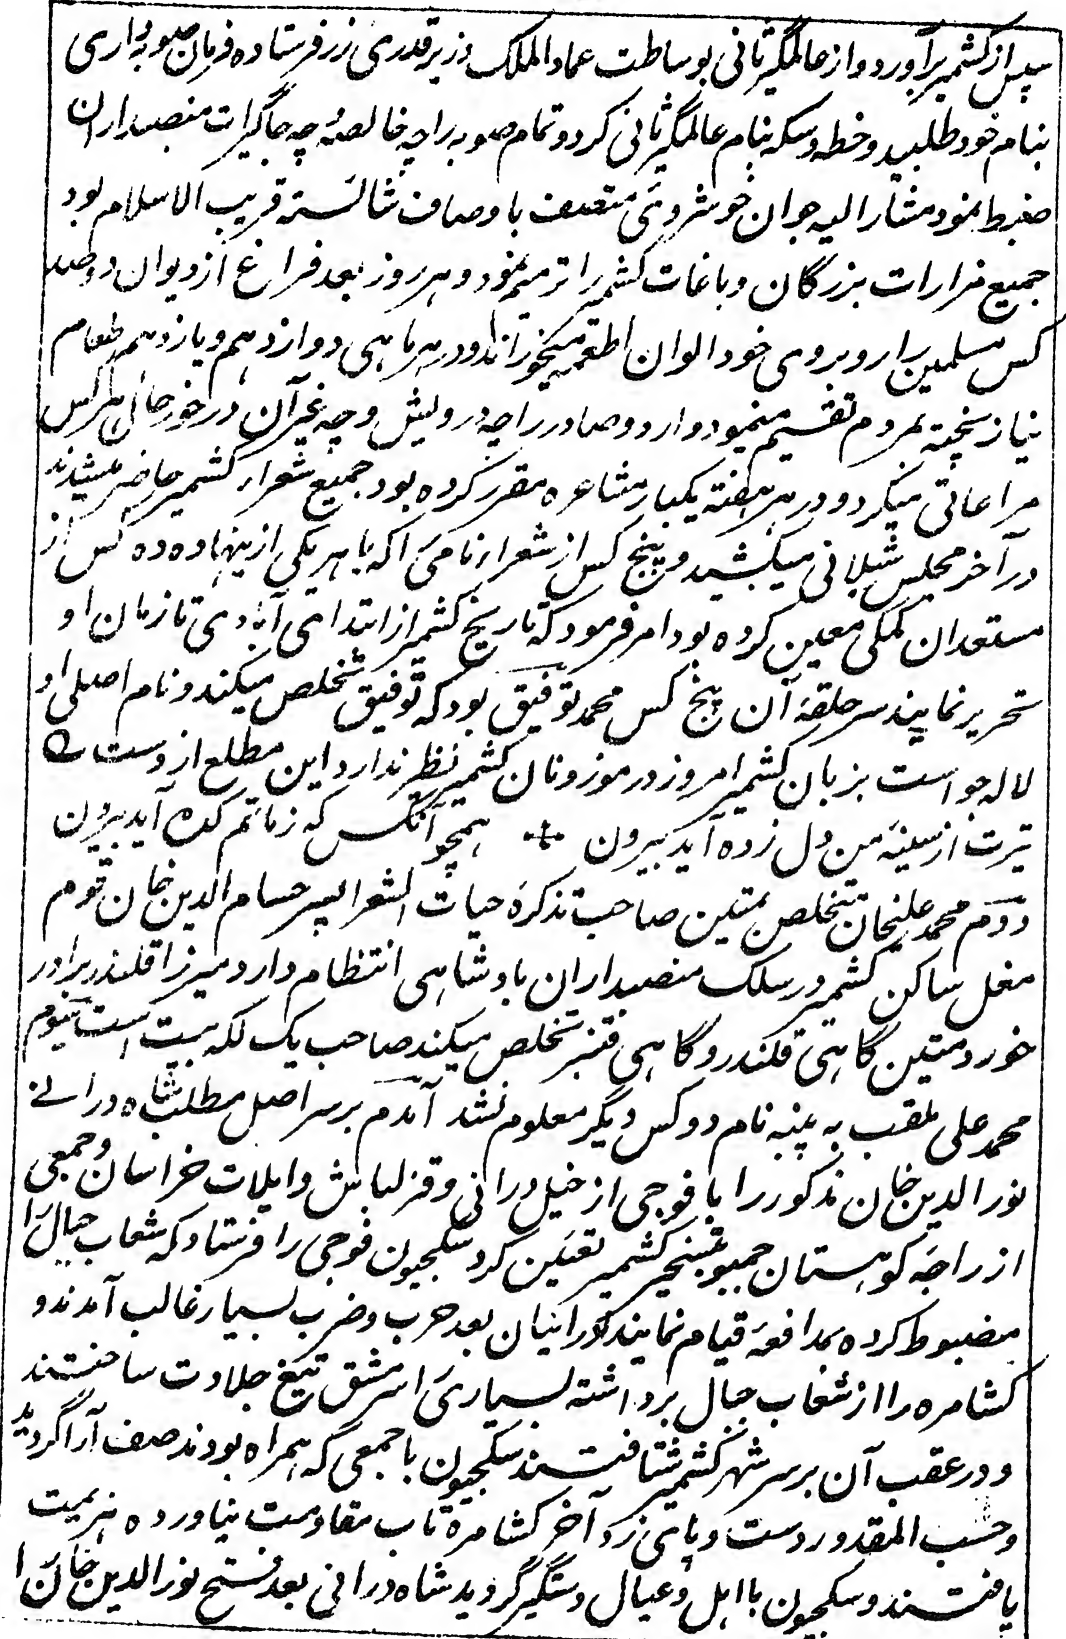 سپس از کشمیر برآورد و از عالمگیر ثانی بوساطت عماد الملک وزیر قدری زر فرستاده فرمان صوبه داری
بنام خود طلبید و خطبه و سکه بنام عالمگیر ثانی کرد و تمام صوبه را چه خالصه و چه جاگیرات منصبداران
ضبط نمود مشار الیه جوان خوشروی متصف باوصاف شائسته قریب الاسلام بود
جمیع مزارات بزرگان و باغات کشمیر را ترمیم نمود و هر روز بعد فراغ از دیوان دو صد
کس مسلمین را روبروی خود الوان اطعمه میخوراند و در هر ماهی دوازدهم و یازدهم طعام
نیاز پخته بمردم تقسیم مینمود و وارد و صادر را چه درویش و چه غیر آن در خور حال هر کس
مراعاتی میکرد و در هر هفته یکبار مشاعره مقرر کرده بود جمیع شعراء کشمیر حاضر میشدند
در آخر مجلس شیلانی میکشید و پنج کس از شعراء نامی را که با هر یکی از ینها ده ده کس از
مستعدان کمکی معین کرده بود امر فرمود که تاریخ کشمیر از ابتدای آبادی تا زمان او
تحریر نمایند سر حلقهٔ آن پنج کس محمد توفیق بود که توفیق تخلص میکند و نام اصلی او
لاله جو است بزبان کشمیر امروز در موزونان کشمیر نظیر ندارد این مطلع از وست
تیرت از سینهٔ من دل زده آید بیرون همچو آنکس که ز ماتمکده آید بیرون
دوم محمد علیخان متخلص بمتین صاحب تذکرهٔ حیات الشعرا پسر حسام الدین خان قوم
مغل ساکن کشمیر در سلک منصبداران بادشاهی انتظام دارد میرزا قلندر برادر
خورد متین گاهی قلندر و گاهی قنبر تخلص میکند صاحب یک لکه بیت است سیوم
محمد علی ملقب به پنبه نام دو کس دیگر معلوم نشد آمدم بر سر اصل مطلب شاه درانی
نور الدین خان مذکور را با فوجی از خیل درانی و قزلباش و ایلات خراسان و جمعی
از راجهٔ کوهستان جمبو بتسخیر کشمیر تعین کرد سکجیون فوجی را فرستاد که شعاب جبال را
مضبوط کرده بمدافعه قیام نمایند درانیان بعد حرب و ضرب بسیار غالب آمدند و
کشامره را از شعاب جبال برداشته بسیاری را سر مشق تیغ جلادت ساختند
و در عقب آن بر سر شهر کشمیر شتافتند سکجیون با جمعی که همراه بودند صف آرا گردید
و حسب المقدور دست و پای زد آخر کشامره تاب مقاومت نیاورده هزیمت
یافتند و سکجیون با اهل و عیال دستگیر گردید شاه درانی بعد فتح نور الدین خان را